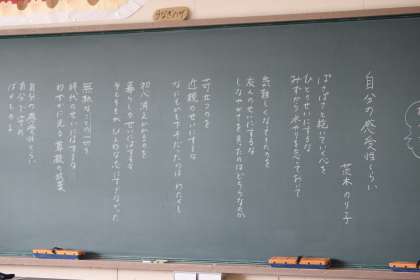 自分の感受性くらい
茨木のり子
ぱさぱさに乾いてゆく心を
ひとのせいにはするな
みずから水やりを怠っておいて
気難しくなってきたのを
友人のせいにはするな
しなやかさを失ったのはどちらなのか
苛立つのを
近親のせいにはするな
なにもかも下手だったのはわたくし
初心消えかかるのを
暮らしのせいにはするな
そもそもが ひよわな志にすぎなかった
駄目なことの一切を
時代のせいにはするな
わずかに光る尊厳の放棄
自分の感受性くらい
自分で守れ
ばかものよ